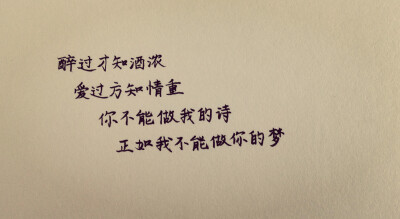 醉过才知酒浓
爱过方知情重
你不能做我的诗
正如我不能做你的梦